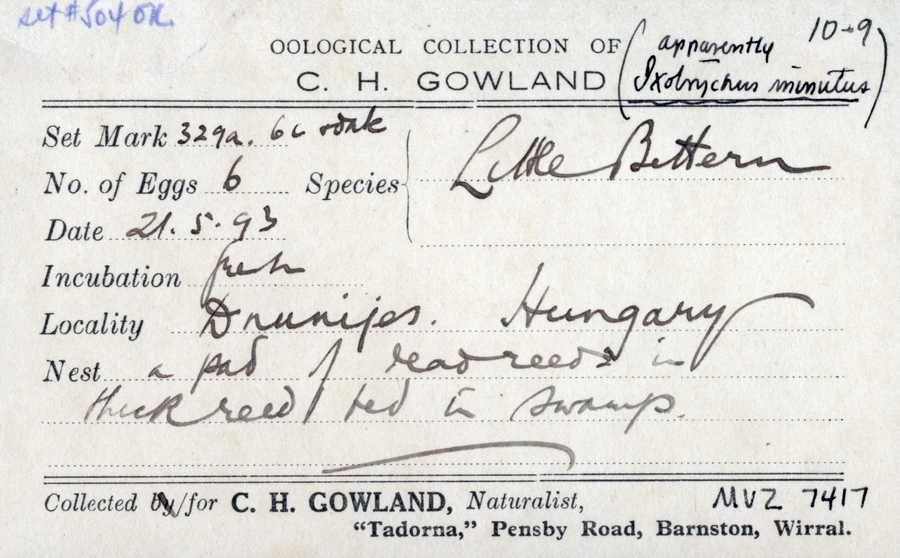 set #504 OK
10-9
OOLOGICAL COLLECTION OF
C. H. GOWLAND
(apparently
Ixobrychus minutus)
Set Mark 329a. 6c
No. of Eggs 6 Species Little Bittern
Date 21.5.93
Incubation fresh
Locality Hungary
Nest a pad of dead reeds in
thick reed bed in swamp.
Collected by/for C. H. GOWLAND, Naturalist,
MVZ 7417
"Tadorna," Pensby Road, Barnston, Wirral.